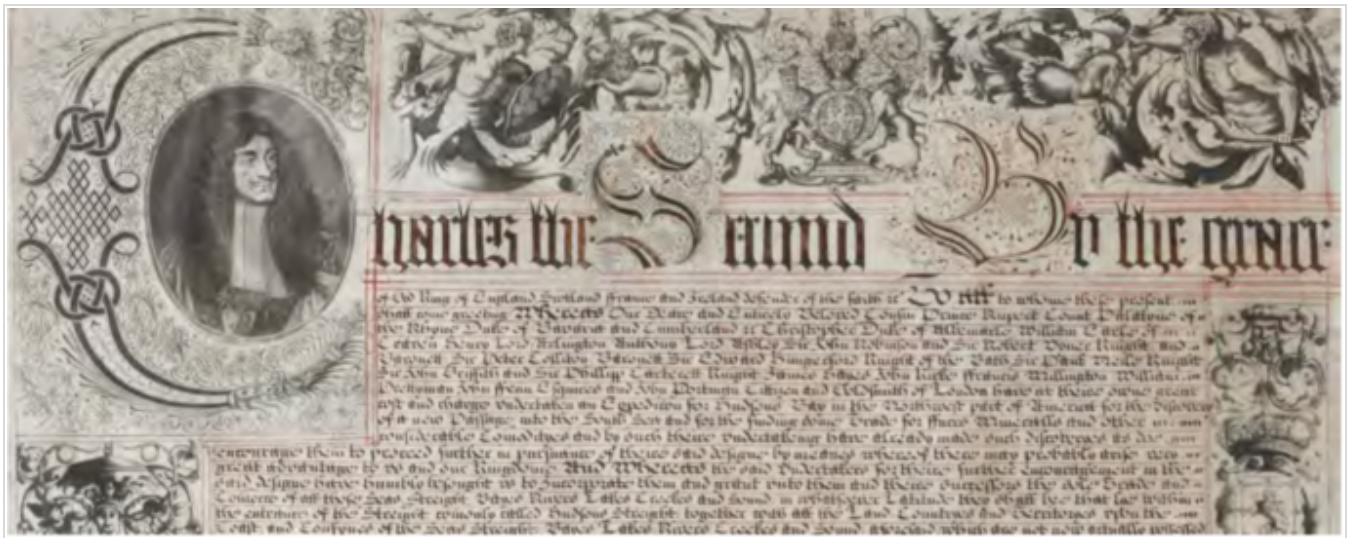 Charles the Second By the grace
of God King of England Scotland ffrance and Ireland defender of the faith &c To all to whome these presents
shall come greeting Whereas Our Deare and Entirely Beloved Cousin Prince Rupert Count Palatyne of
the Rhyne Duke of Bavaria and Cumberland &c Christopher Duke of Albemarle William Earle of
Craven Henry Lord Arlington Anthony Lord Ashley Sir John Robinson and Sir Robert Vyner Knights and
Baronetts Sir Peter Colliton Baronett Sir Edward Hungerford Knight of the Bath Sir Paul Neele Knight
Sir John Griffith and Sir Phillip Carteret Knights James Hayes John Kirke ffrancis Millington William
Prettyman John ffenn Esquires and John Portman Cittizen and Goldsmith of London have at theire owne great
cost and charge undertaken an Expedicion for Hudsons Bay in the Northwest part of America for the discovery
of a new Passage into the South Sea and for the finding some Trade for ffurrs Mineralls and other
considerable Comodityes and by such theire undertakeing have already made such discoveryes as doe
encourage them to proceed further in pursuance of theire said designe by meanes whereof there may probably arise very
great advantage to us and our Kingdome And Whereas the said Undertakers for theire further encouragement in the
said designe have humbly besought us to Incorporate them and grant unto them and theire successors the sole Trade and
Comerce of all those Seas Streights Bayes Rivers Lakes Creekes and Sounds in whatsoever Latitude they shall bee that lie within
the entrance of the Streights comonly called Hudsons Streights together with all the Lands Countryes and Territoryes upon the
Coasts and Confynes of the Seas Streights Bayes Lakes Rivers Creekes and Sounds aforesaid which are not now actually possessed